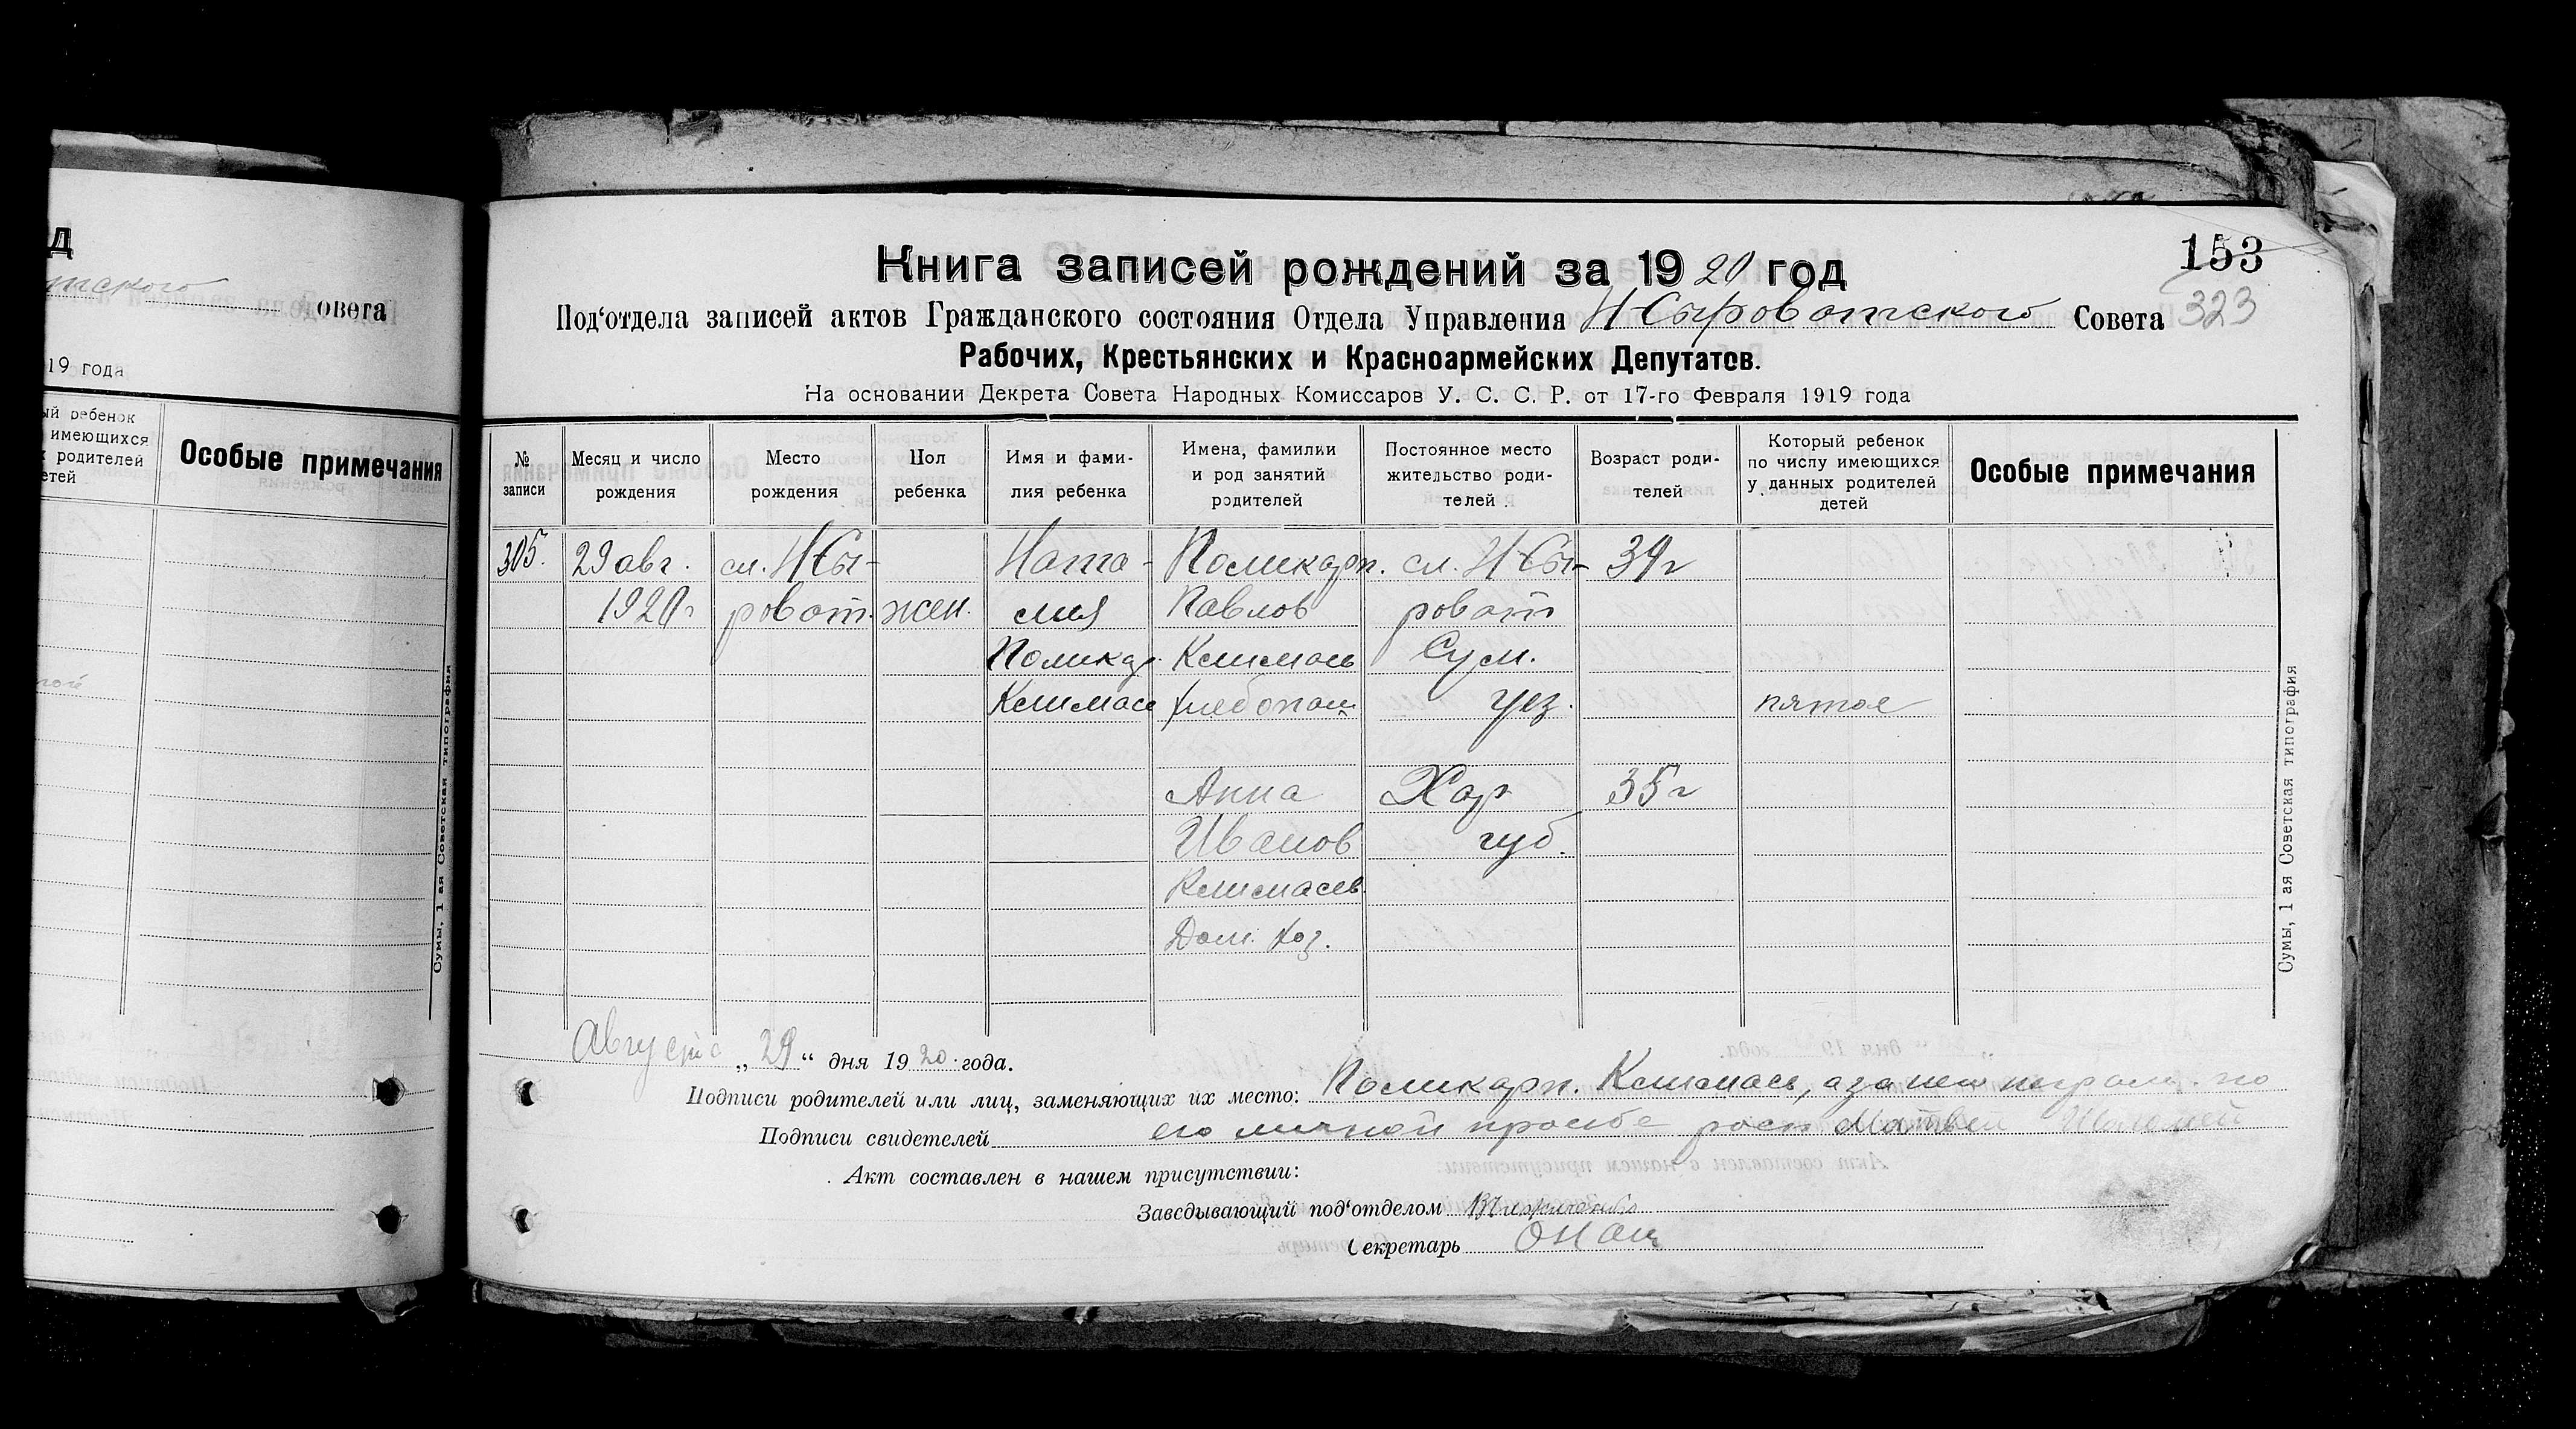 д
тского овета
19 года
ый ребенок
имеющихся
родителей
етей
Особые примечания
Сумы, 1 ая Советская типография
153
323
Книга записей рождений за 1920 год
Под'отдела записей актов Гражданского состояния Отдела Управления Н Сыроватского Совета
Рабочих, Крестьянских и Красноармейских Депутатов.
На основании Декрета Совета Народных Комиссаров У. С. С. Р. от 17-го Февраля 1919 года
№ записи
Месяц и число рождения
Место рождения
Пол ребенка
Имя и фами-
лия ребенка
Имена, фамилии
и род занятий
родителей
Постоянное место
жительство роди-
телей
Возраст роди-
телей
Который ребенок
по числу имеющихся
у данных родителей
детей
Особые примечания
305. 29 авг. сл. Н Сы- Ната- Поликарп. сл. Н Сы- 39 г
1920 г роват. жен. лия Павлов роват
Поликар. Климась Сум.
Климась хлебопаш уез. пятое
Анна Хар 35 г
Иванов губ.
Климасев.
Дом. хоз.
Августа „29“ дня 1920 года.
Подписи родителей или лиц, заменяющих их место: Поликарп. Климась, а за него неграм. по
Подписи свидетелей его личной просьбе росп Матвей
Акт составлен в нашем присутствии:
Заведывающий под'отделом
Секретарь
Сумы, 1 ая Советская типография